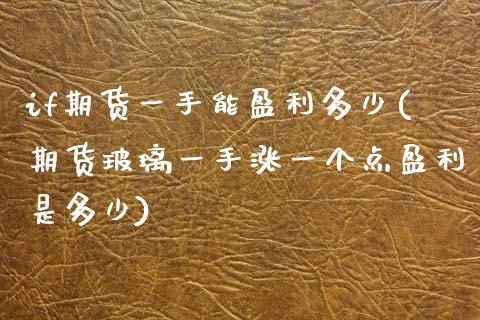 if期货一手能盈利多少(
期货玻璃一手涨一个点盈利
是多少)